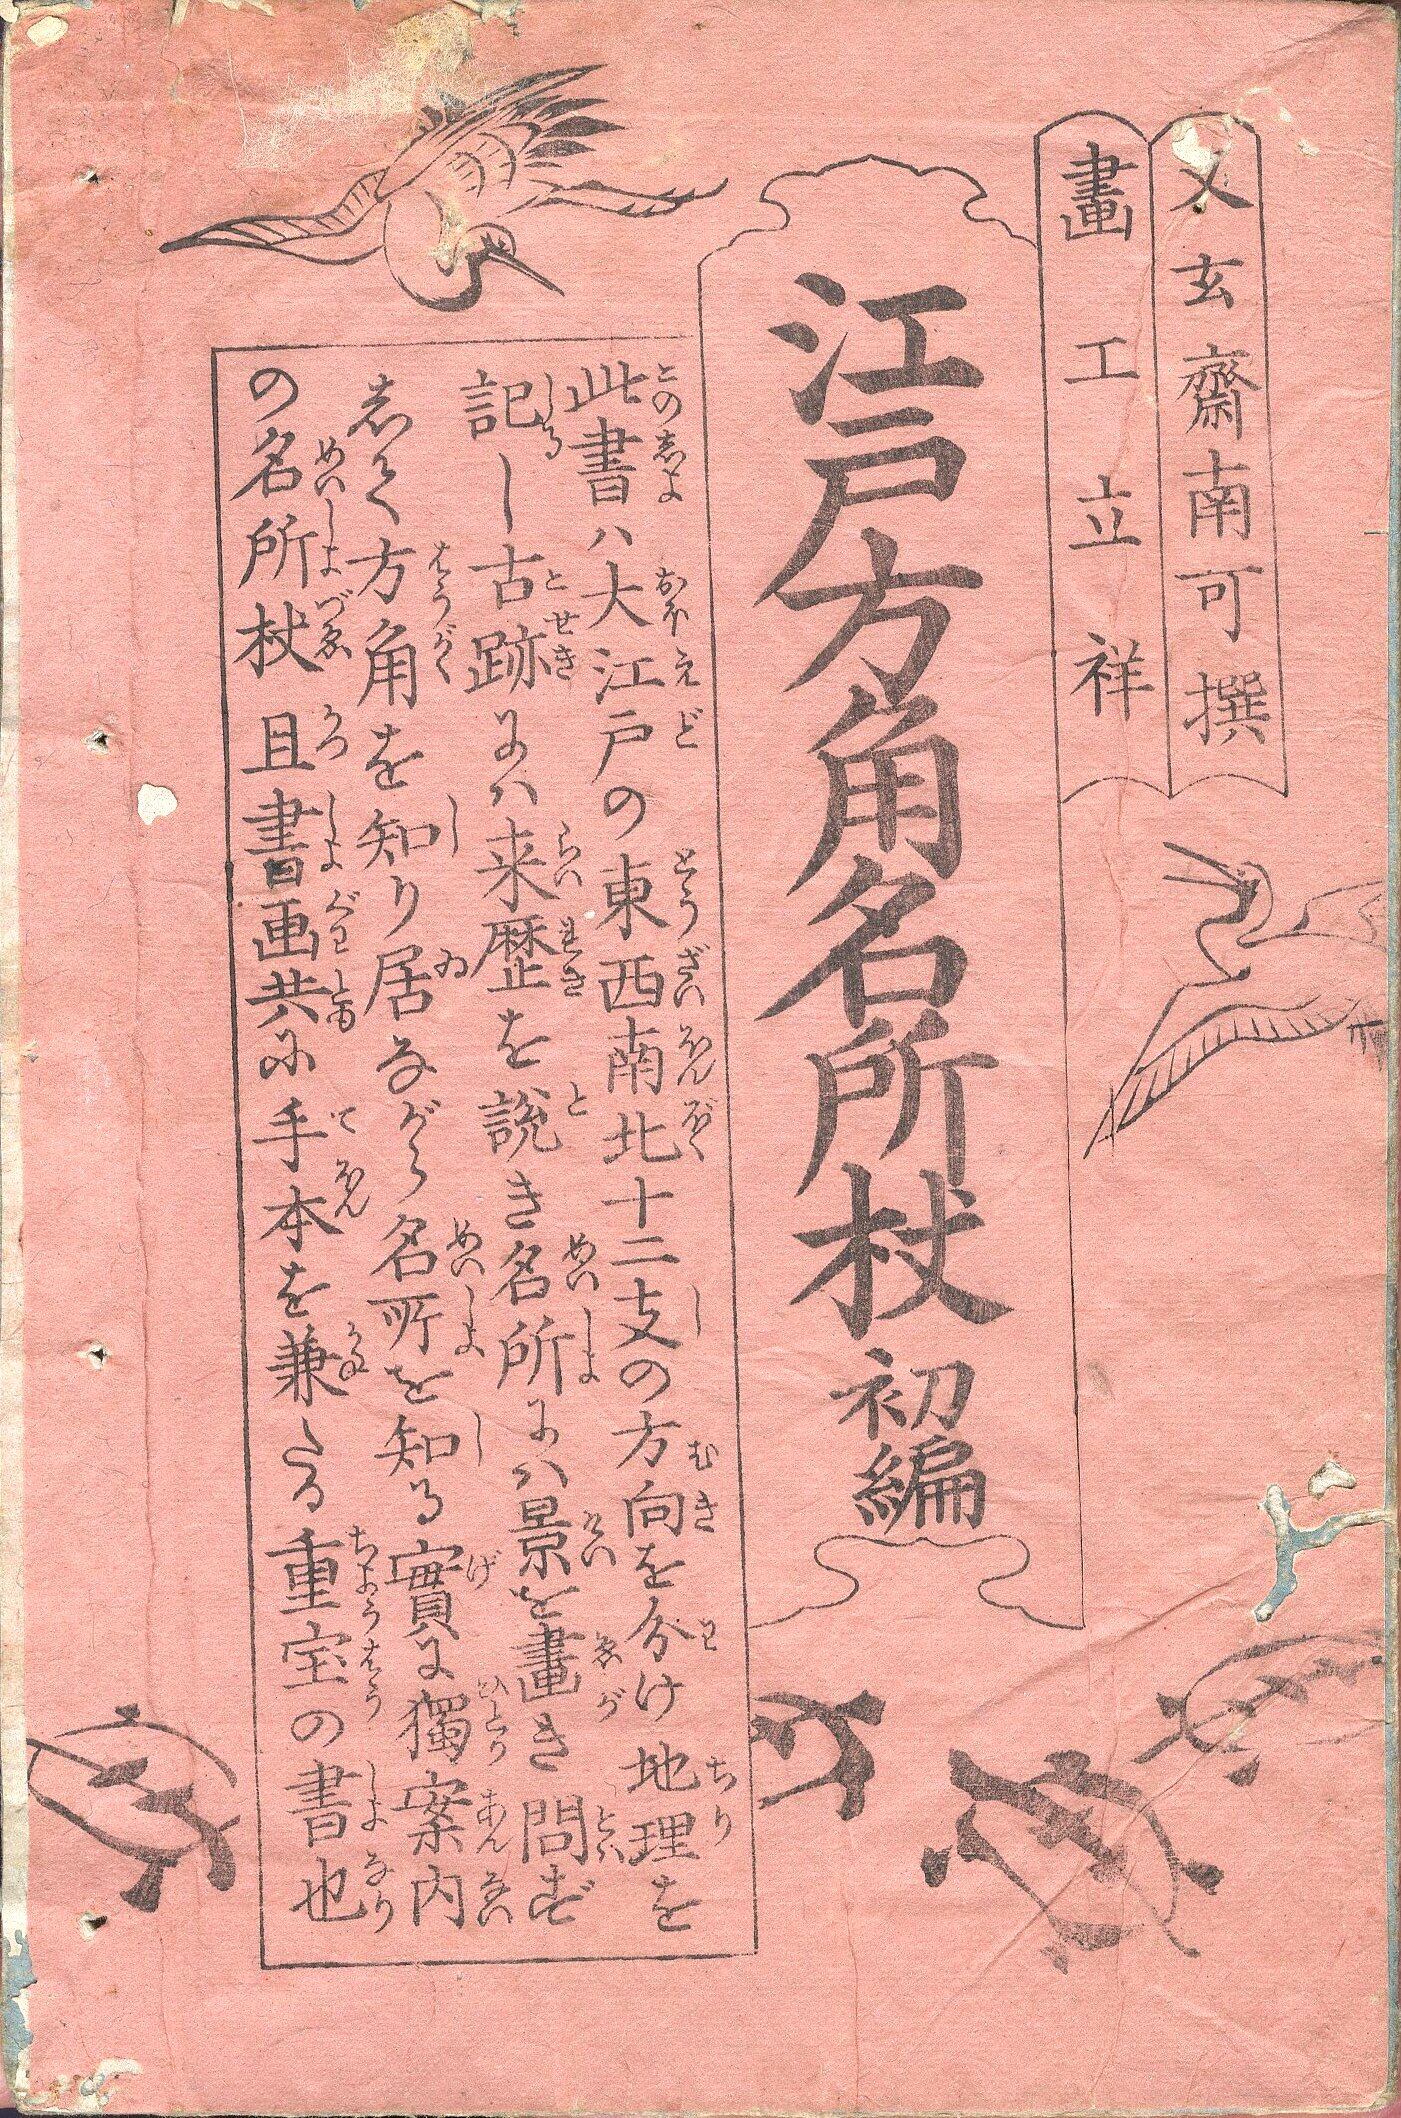 又玄齋南可撰
畫工立祥
江戸方角名所杖 初編
此書ハ大江戸の東西南北十二支の方向を分け地理を
記し古跡にハ来歴を説き名所にハ景を畫き問ずし
して方角を知り居ながら名所を知る實に獨案内
の名所杖且書画共に手本を兼たる重宝の書也